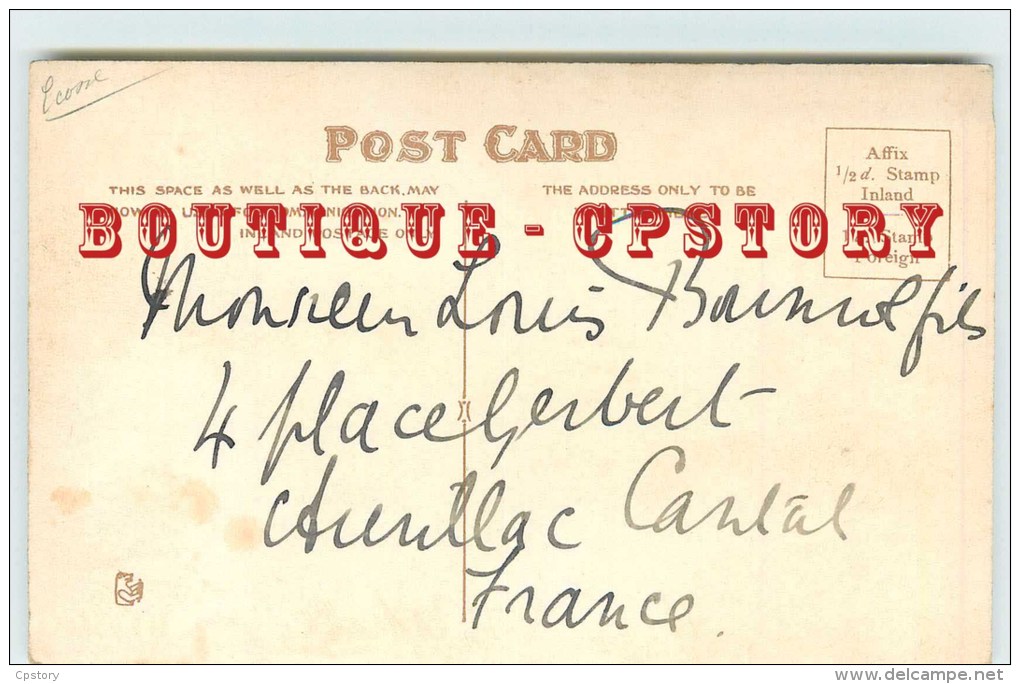 Ecosse
POST CARD
THIS SPACE AS WELL AS THE BACK, MAY
INLAND POSTAGE ONLY
THE ADDRESS ONLY TO BE
Affix
1/2 d. Stamp
Inland
Stamp
Foreign
BOUTIQUE - CPSTORY
Monsieur Louis fils
4 place Gerbert
Aurillac Cantal
France
Cpstory
delcampe.net